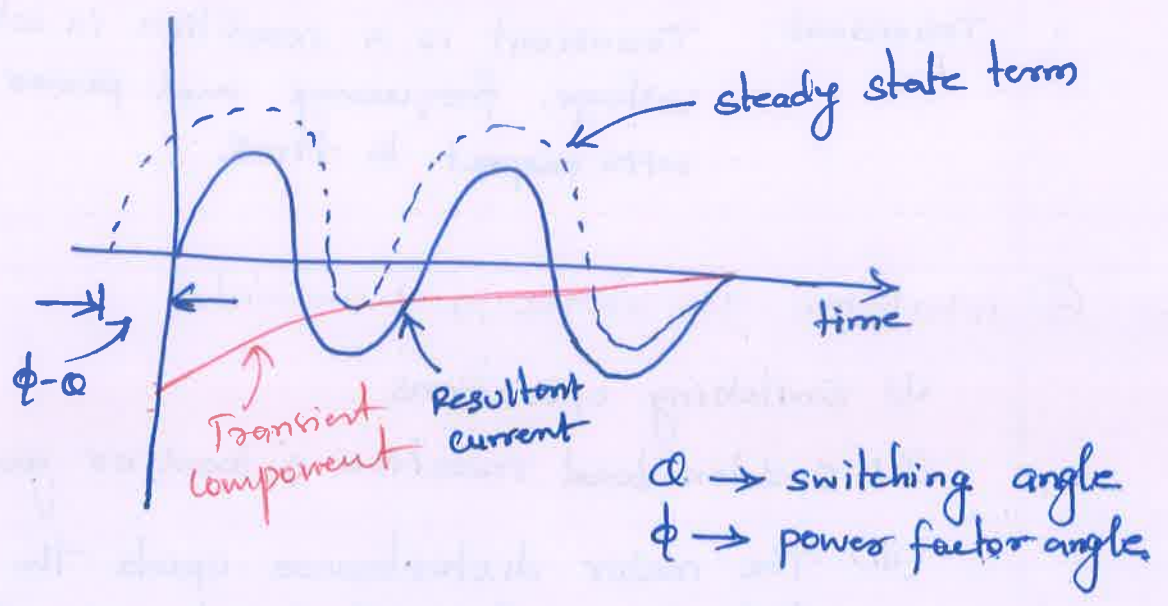 steady state term
time
ϕ-θ
Transient
component
resultant
current
θ → switching angle
ϕ → power factor angle